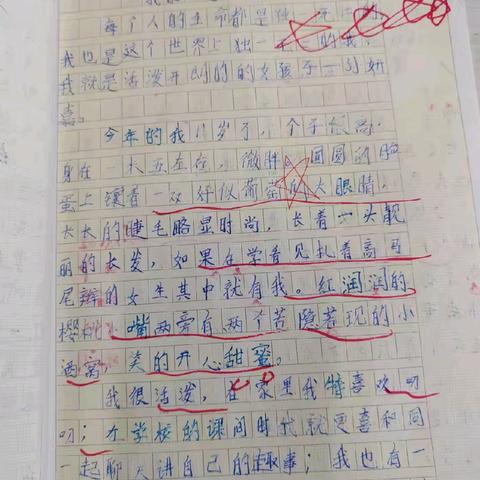 每个人的生命都是独一无二的，
我也是这个世界上独一无二的我，
我就是活泼开朗的的女孩子一刘妍
嘉。
今年的我11岁了，个子很高.
身在一长五左右，微胖，圆圆的脸
蛋上镶着一双好似葡萄的大眼睛，
长长的睫毛略显时尚，长着一头靓
丽的长发，如果在学香见扎着高马
尾辫的女生其中就有我。红润润的
樱桃小嘴两旁有两个若隐若现的小
酒窝，笑的开心甜蜜。
我很活泼，在家里我特喜欢叨
叨；在学校的课间时我就更喜和同
一起聊天讲自己的趣事；我也有一